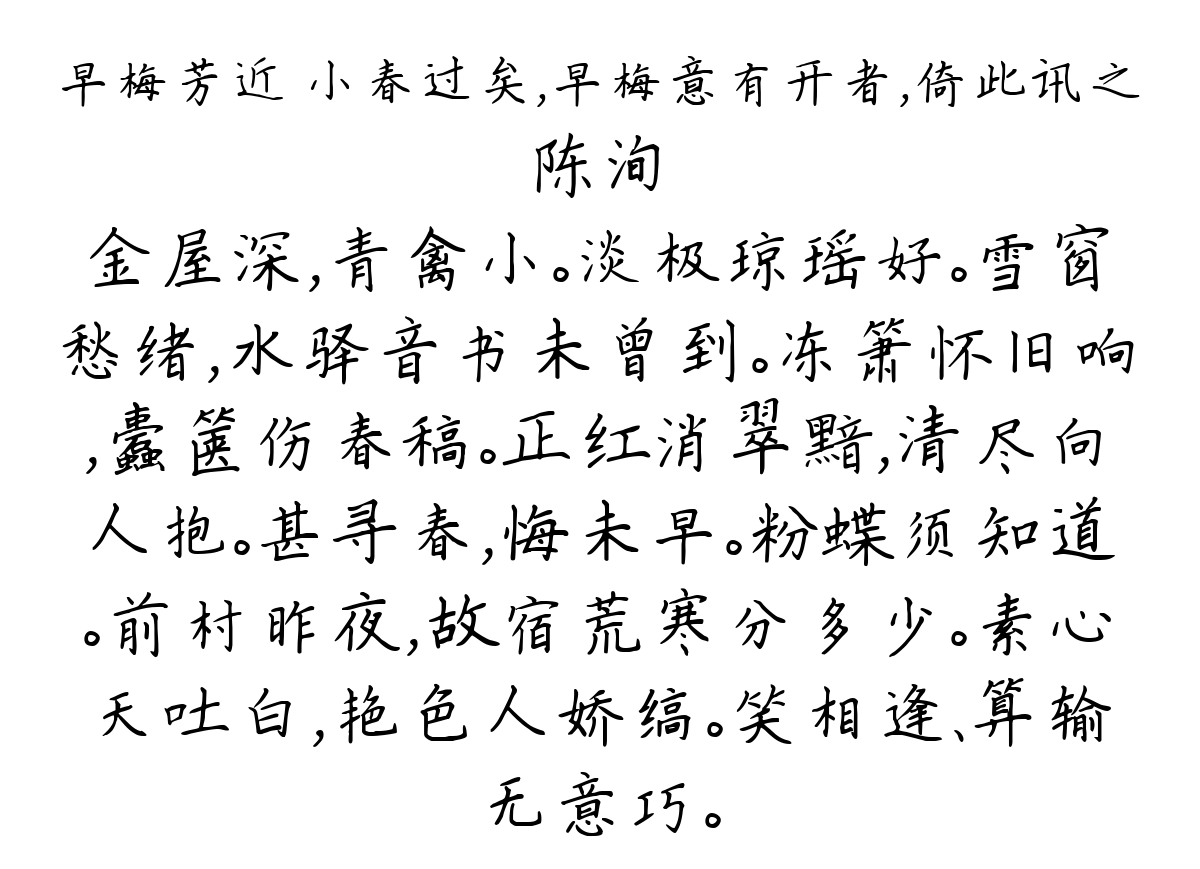 早梅芳近 小春过矣,早梅意有开者,倚此讯之
陈洵
金屋深,青禽小。淡极琼瑶好。雪窗
愁绪,水驿音书未曾到。冻箫怀旧响
,蠹箧伤春稿。正红消翠黯,清尽向
人抱。甚寻春,悔未早。粉蝶须知道
。前村昨夜,故宿荒寒分多少。素心
天吐白,艳色人娇缟。笑相逢、算输
无意巧。